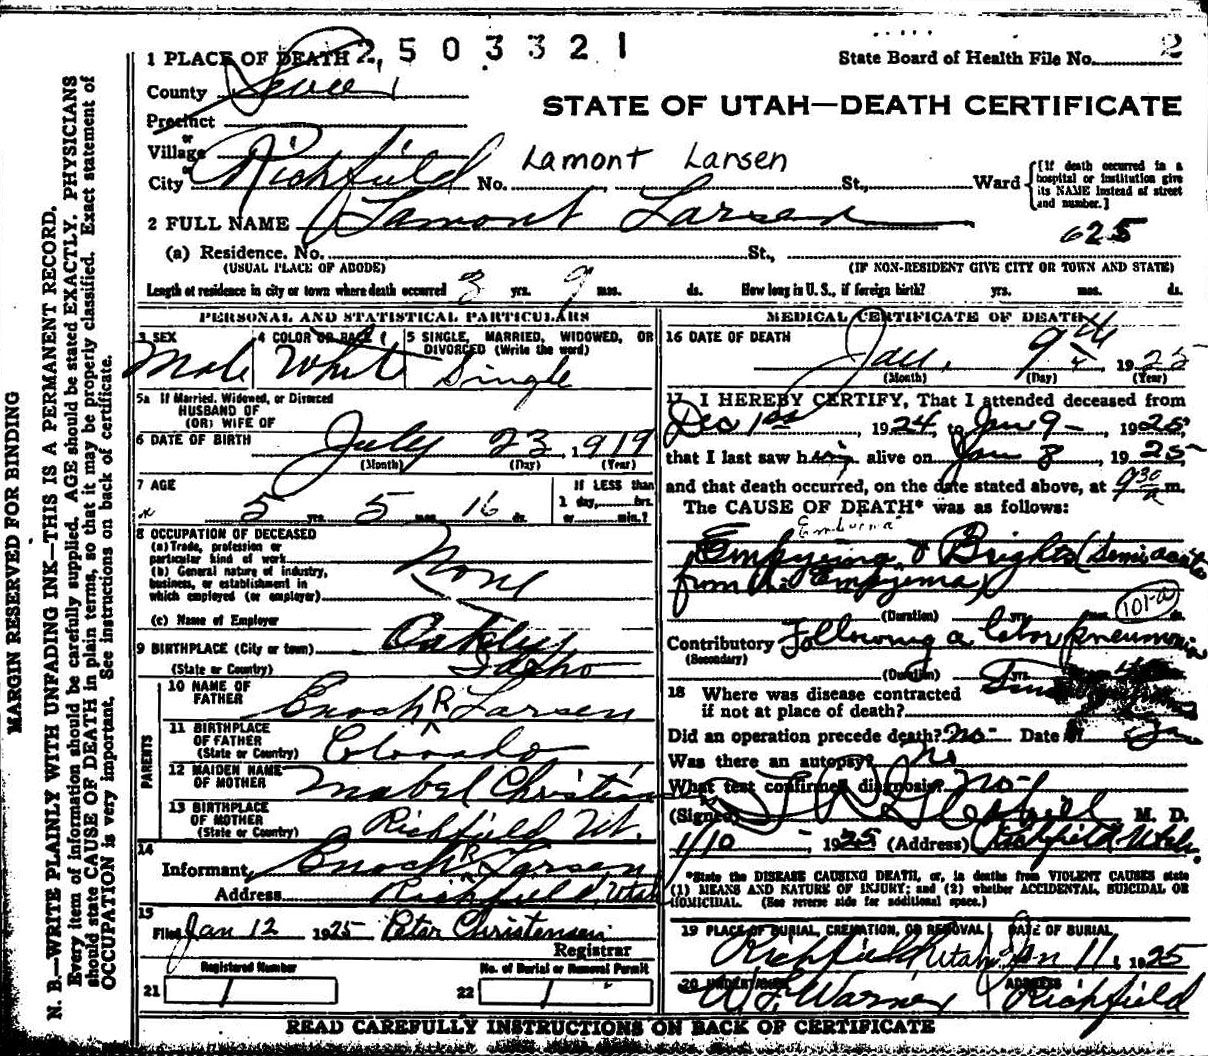 1 PLACE OF DEATH 2503321
State Board of Health File No. 2
County Sevier
STATE OF UTAH—DEATH CERTIFICATE
Precinct
or
Village
Lamont Larsen
City Richfield No. St., Ward
[If death occurred in a hospital or institution give its NAME instead of street and number.]
2 FULL NAME Lamont Larsen
625
(a) Residence. No. St.,
(USUAL PLACE OF ABODE) (IF NON-RESIDENT GIVE CITY OR TOWN AND STATE)
Length of residence in city or town where death occurred 3 yrs. 9 mos. ds. How long in U. S., if foreign birth? yrs. mos. ds.
PERSONAL AND STATISTICAL PARTICULARS
3 SEX Male
4 COLOR OR RACE White
5 SINGLE, MARRIED, WIDOWED, OR DIVORCED (Write the word) Single
5a If Married, Widowed, or Divorced
HUSBAND OF
(OR) WIFE OF
6 DATE OF BIRTH July 23, 1919
(Month) (Day) (Year)
7 AGE 5 yrs. 5 mos. 16 ds.
If LESS than
1 day, hrs.
or min.?
8 OCCUPATION OF DECEASED
(a) Trade, profession or
particular kind of work None
(b) General nature of industry,
business, or establishment in
which employed (or employer)
(c) Name of Employer
9 BIRTHPLACE (City or town) Oakley
(State or Country) Idaho
PARENTS
10 NAME OF FATHER Enoch R Larsen
11 BIRTHPLACE OF FATHER (State or Country) Colorado
12 MAIDEN NAME OF MOTHER Mabel
13 BIRTHPLACE OF MOTHER (State or Country) Richfield Ut.
14
Informant Enoch R Larsen
Address Richfield, Utah
15
Filed Jan 12 1925 Peter Christensen
Registrar
Registered Number No. of Burial or Removal Permit
21 1 22 1
MEDICAL CERTIFICATE OF DEATH
16 DATE OF DEATH
Jan. 9th 1925
(Month) (Day) (Year)
17 I HEREBY CERTIFY, That I attended deceased from
Dec 1st, 1924, to Jan 9, 1925,
that I last saw him alive on Jan 8, 1925
and that death occurred, on the date stated above, at 9 30 a m.
The CAUSE OF DEATH* was as follows:
Empyema & Brights (
from the Empyema)
(Duration) yrs. mos. ds.
101-a
Contributory Following a lobar pneumonia
(Secondary)
(Duration) yrs.
18 Where was disease contracted
if not at place of death?
Did an operation precede death? no Date of
Was there an autopsy? No
What test confirmed diagnosis? no
(Signed) M. D.
1/10, 1925 (Address) Richfield Utah.
*State the DISEASE CAUSING DEATH, or, in deaths from VIOLENT CAUSES state
(1) MEANS AND NATURE OF INJURY; and (2) whether ACCIDENTAL, SUICIDAL OR
HOMICIDAL. (See reverse side for additional space.)
19 PLACE OF BURIAL, CREMATION, OR REMOVAL DATE OF BURIAL
Richfield Utah Jan 11, 1925
20 UNDERTAKER ADDRESS
Warner Richfield
READ CAREFULLY INSTRUCTIONS ON BACK OF CERTIFICATE
MARGIN RESERVED FOR BINDING
N. B.—WRITE PLAINLY WITH UNFADING INK—THIS IS A PERMANENT RECORD.
Every item of information should be carefully supplied. AGE should be stated EXACTLY. PHYSICIANS
should state CAUSE OF DEATH in plain terms, so that it may be properly classified. Exact statement of
OCCUPATION is very important. See instructions on back of certificate.